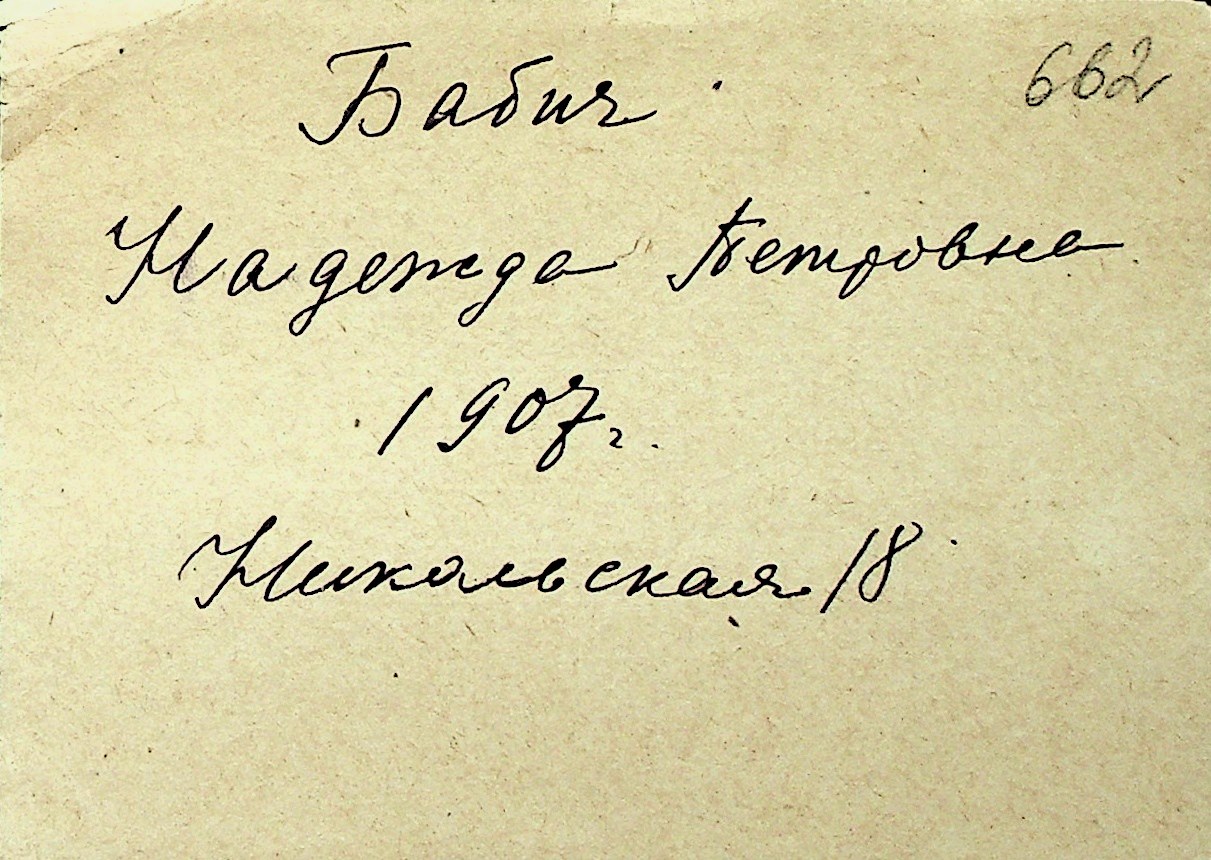 662
Бабич
Надежда Петровна
1907г.
Никольская 18